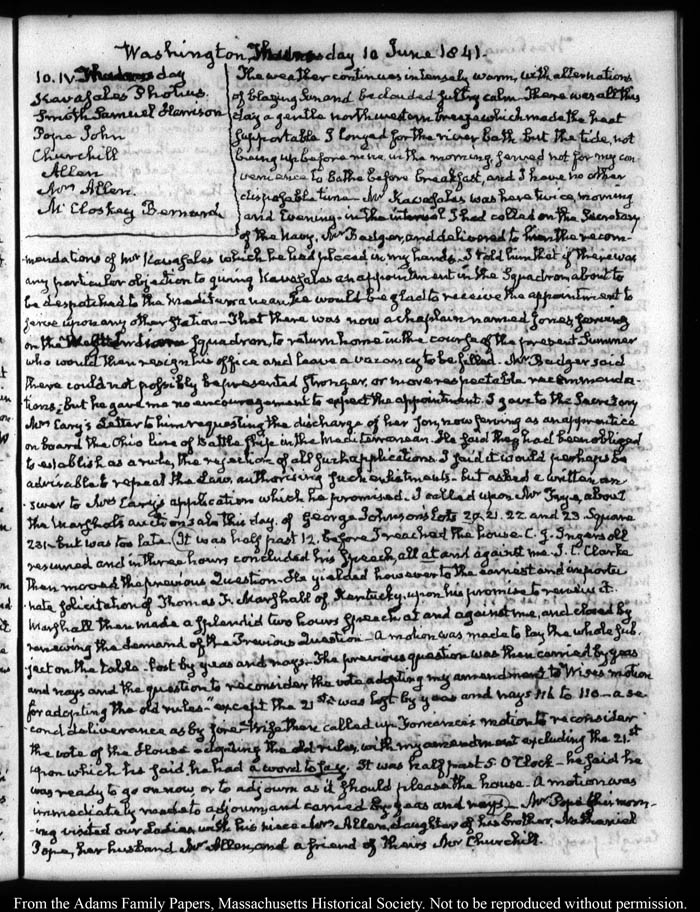 Washington, Thursday 10 June 1841.
10. IV. Thursday
Kavasales Photius.
Smith Samuel Harrison
Pope John
Churchill
Allen
Mrs Allen.
McCloskey Bernard
The weather continues intensely warm, with alternations
of blazing sun and beclouded sultry calm. There was all this
day a gentle north western breeze which made the heat
supportable. I longed for the river bath but the tide, not
being up before nine, in the morning, served not for my con
venience to bathe before breakfast, and I have no other
disposable time. Mr Kavasales was here twice, morning
and Evening. in the interval I had called on the Secretary
of the Navy, Mr Badger, and delivered to him the recom-
mendations of Mr Kavasales which he had placed in my hands. I told him that if there was
any particular objection to giving Kavasales an appointment in the Squadron about to
be despatched to the Mediterranean, he would be glad to receive the appointment to
serve upon any other station — That there was now a chaplain named Jones, serving
on the West Indian Squadron, to return home in the course of the present Summer
who would then resign his office and leave a vacancy to be filled. Mr Badger said
there could not possibly be presented stronger, or more respectable recommenda-
tions; but he gave me no encouragement to expect the appointment. I gave to the Secretary
Mrs Cary's Letter to him requesting the discharge of her Son, now serving as an apprentice
on board the Ohio line of Battle ship in the Mediterranean. He said they had been obliged
to establish as a rule, the rejection of all such applications. I said it would perhaps be
advisable to repeal the Law, authorising such enlistments — but asked a written an
swer to Mrs Cary's application which he promised. I called upon Mr Frye, about
the Marshal's auction sale this day, of George Johnson's Lots 20. 21. 22 and 23. Square
231 — but was too late. (It was half past 12. before I reached the house. C. J. Ingersoll
resumed and in three hours concluded his Speech, all at and against me. J. C. Clarke
then moved the previous Question. He yielded however to the earnest and importu
nate solicitation of Thomas F. Marshall of Kentucky, upon his promise to renew it.
Marshall then made a splendid two hours Speech at and against me, and closed by
renewing the demand of the Previous Question — A motion was made to lay the whole Sub-
ject on the table. lost by yeas and nays. The previous question was then carried by yeas
and nays and the question to reconsider the vote adopting my amendment to Wise's motion
for adopting the old rules — except the 21st was lost by yeas and nays 116 to 110 — a se
cond deliverance as by fire — Wise then called up Fornance's motion to reconsider
the vote of the House adopting the old rules, with my amendment excluding the 21.st
upon which he said he had a word to say. It was half past 5. O'Clock — he said he
was ready to go on now, or to adjourn as it should please the house — A motion was
immediately made to adjourn, and carried by yeas and nays) — Mr Pope this morn-
ing visited our Ladies, with his niece Mrs Allen, daughter of his brother, Nathaniel
Pope, her husband Mr Allen, and a friend of theirs Mr Churchill.
From the Adams Family Papers, Massachusetts Historical Society. Not to be reproduced without permission.